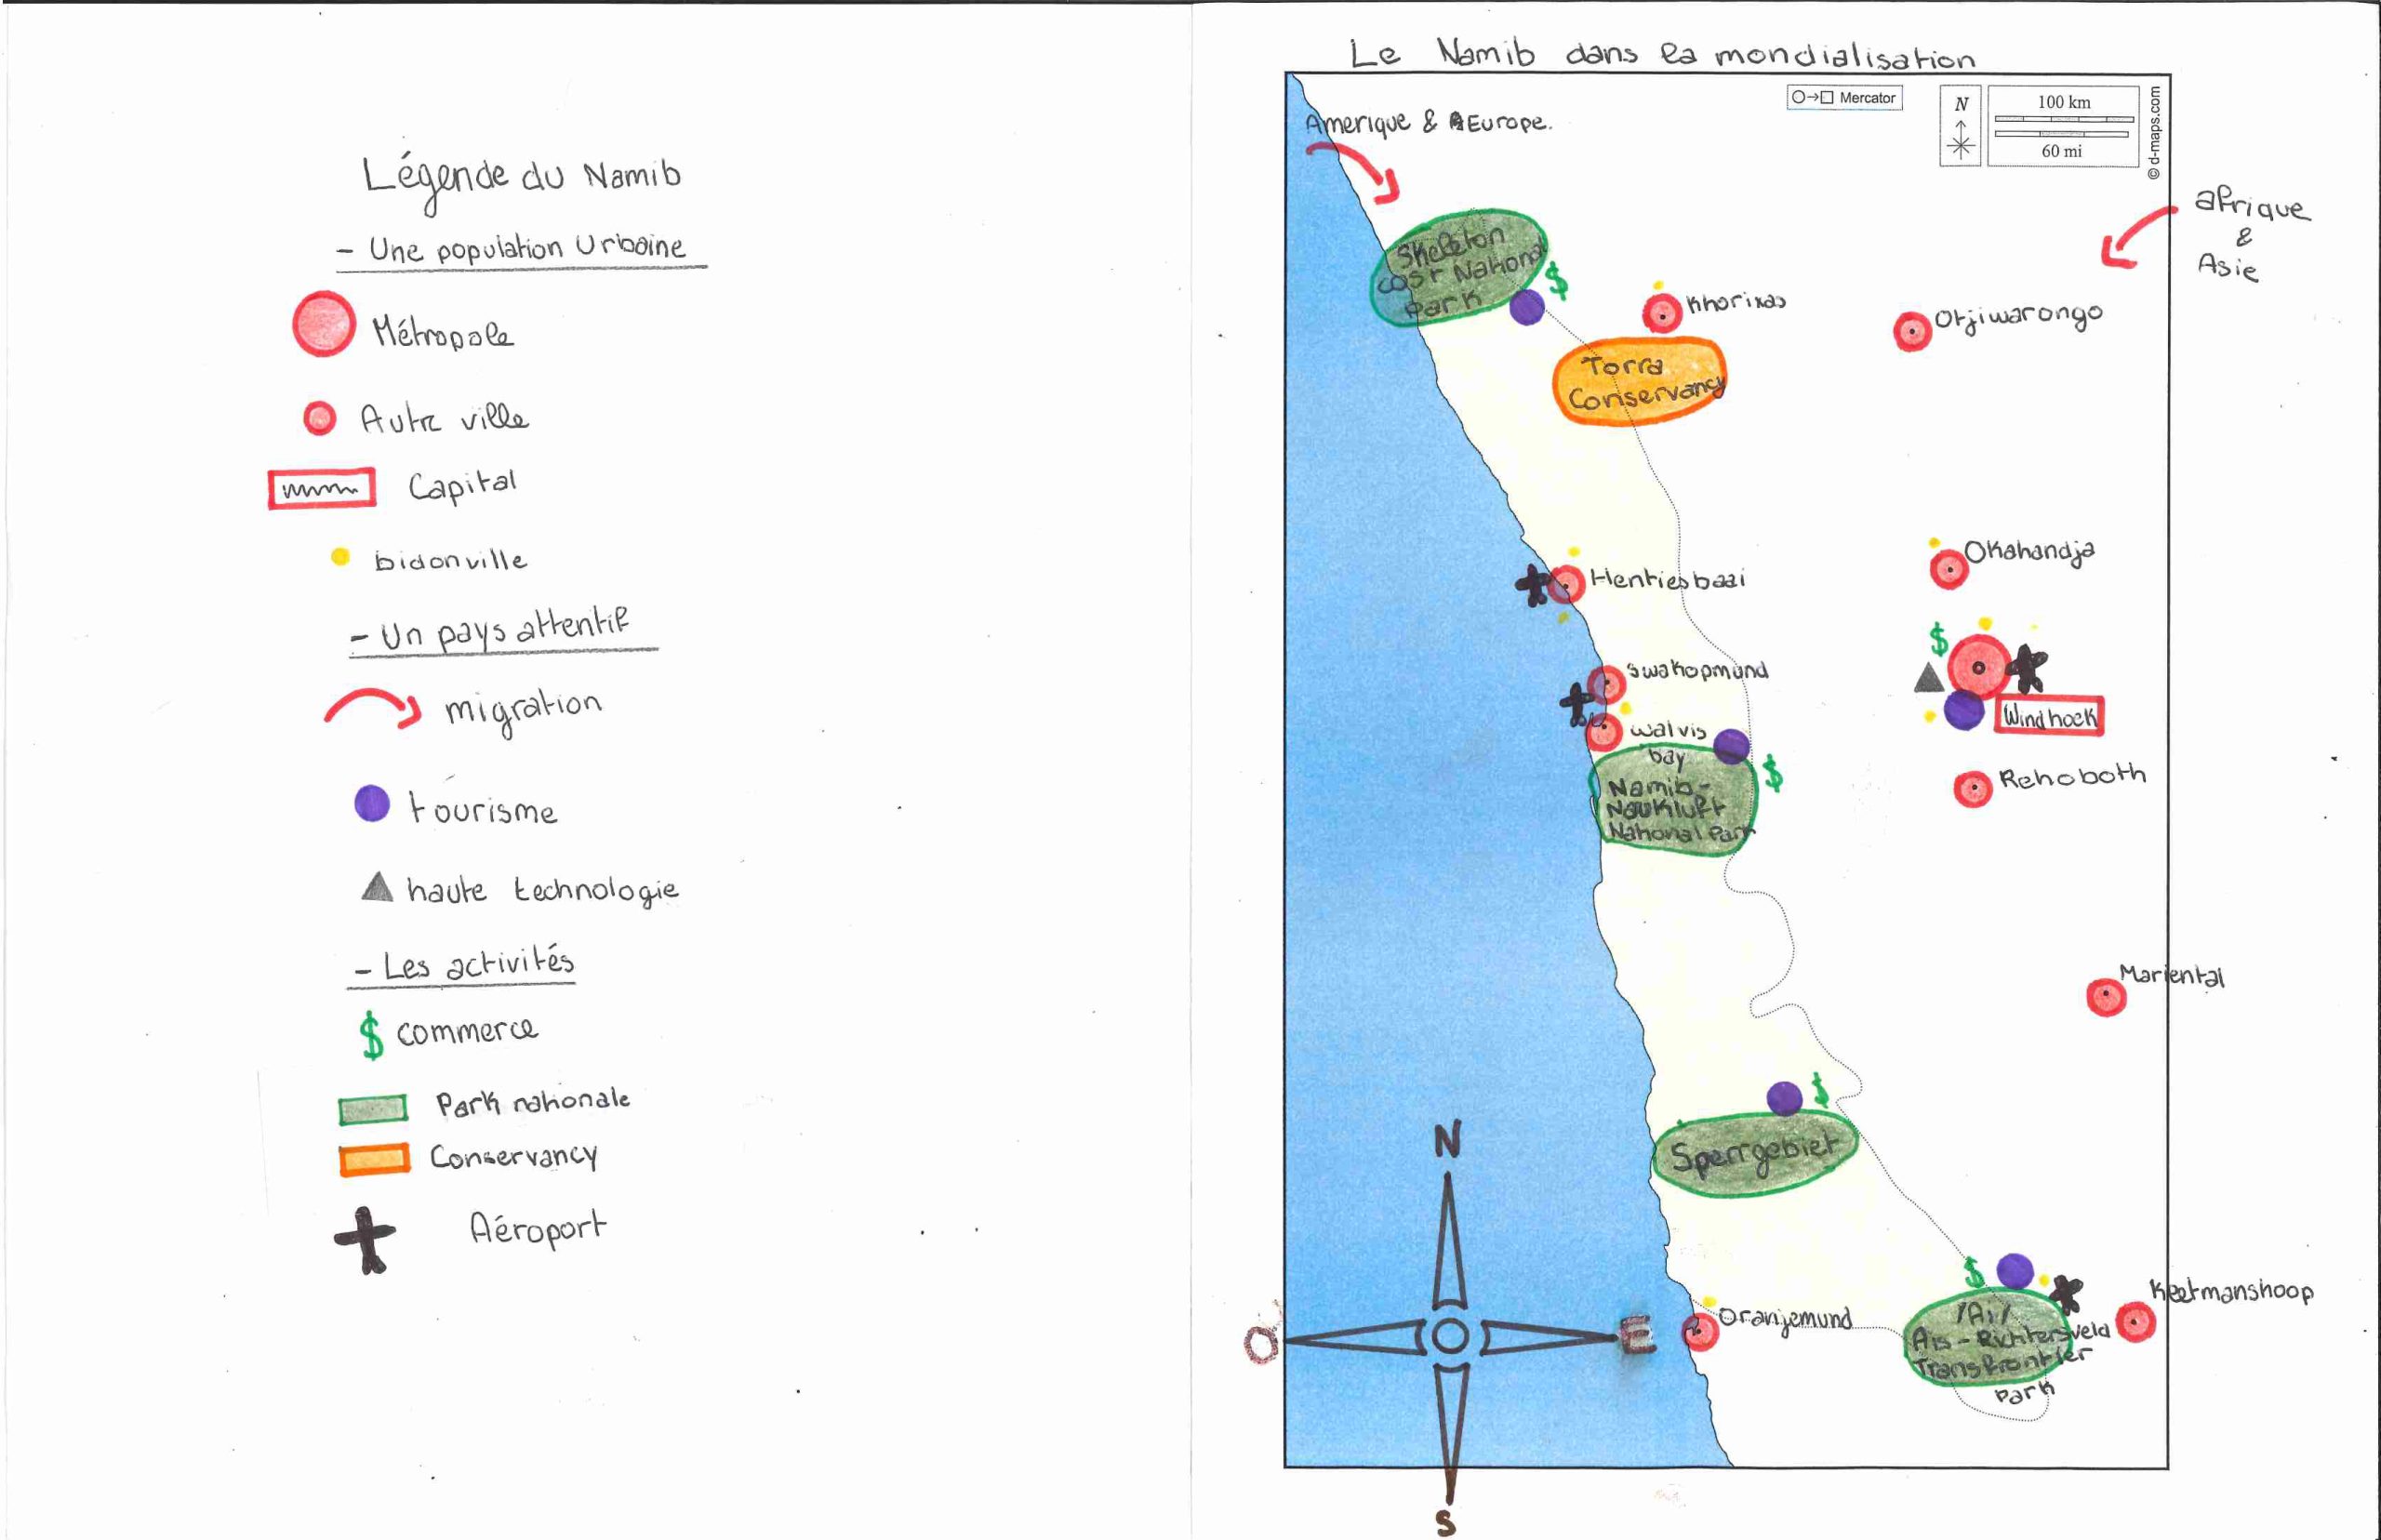 Légende du Namib
- Une population Urbaine
Métropole
Autre ville
Capital
bidonville
- Un pays attentif
migration
tourisme
haute technologie
- Les activités
$ commerce
Park nationale
Conservancy
Aéroport
Le Namib dans la mondialisation
Mercator
N
100 km
60 mi
© d-maps.com
Amerique & Europe.
afrique
&
Asie
Skeleton
cost National
park
$
Khorixas
Otjiwarongo
Torra
Conservancy
Okahandja
Hentiesbaai
$
Swakopmund
Windhoek
walvis
bay
$
Namib-
Naukluft
National Park
Rehoboth
Mariental
$
Sperrgebiet
N
O
E
S
$
Keetmanshoop
Oranjemund
/Ai/
Ais-Richtersveld
Transfrontier
park